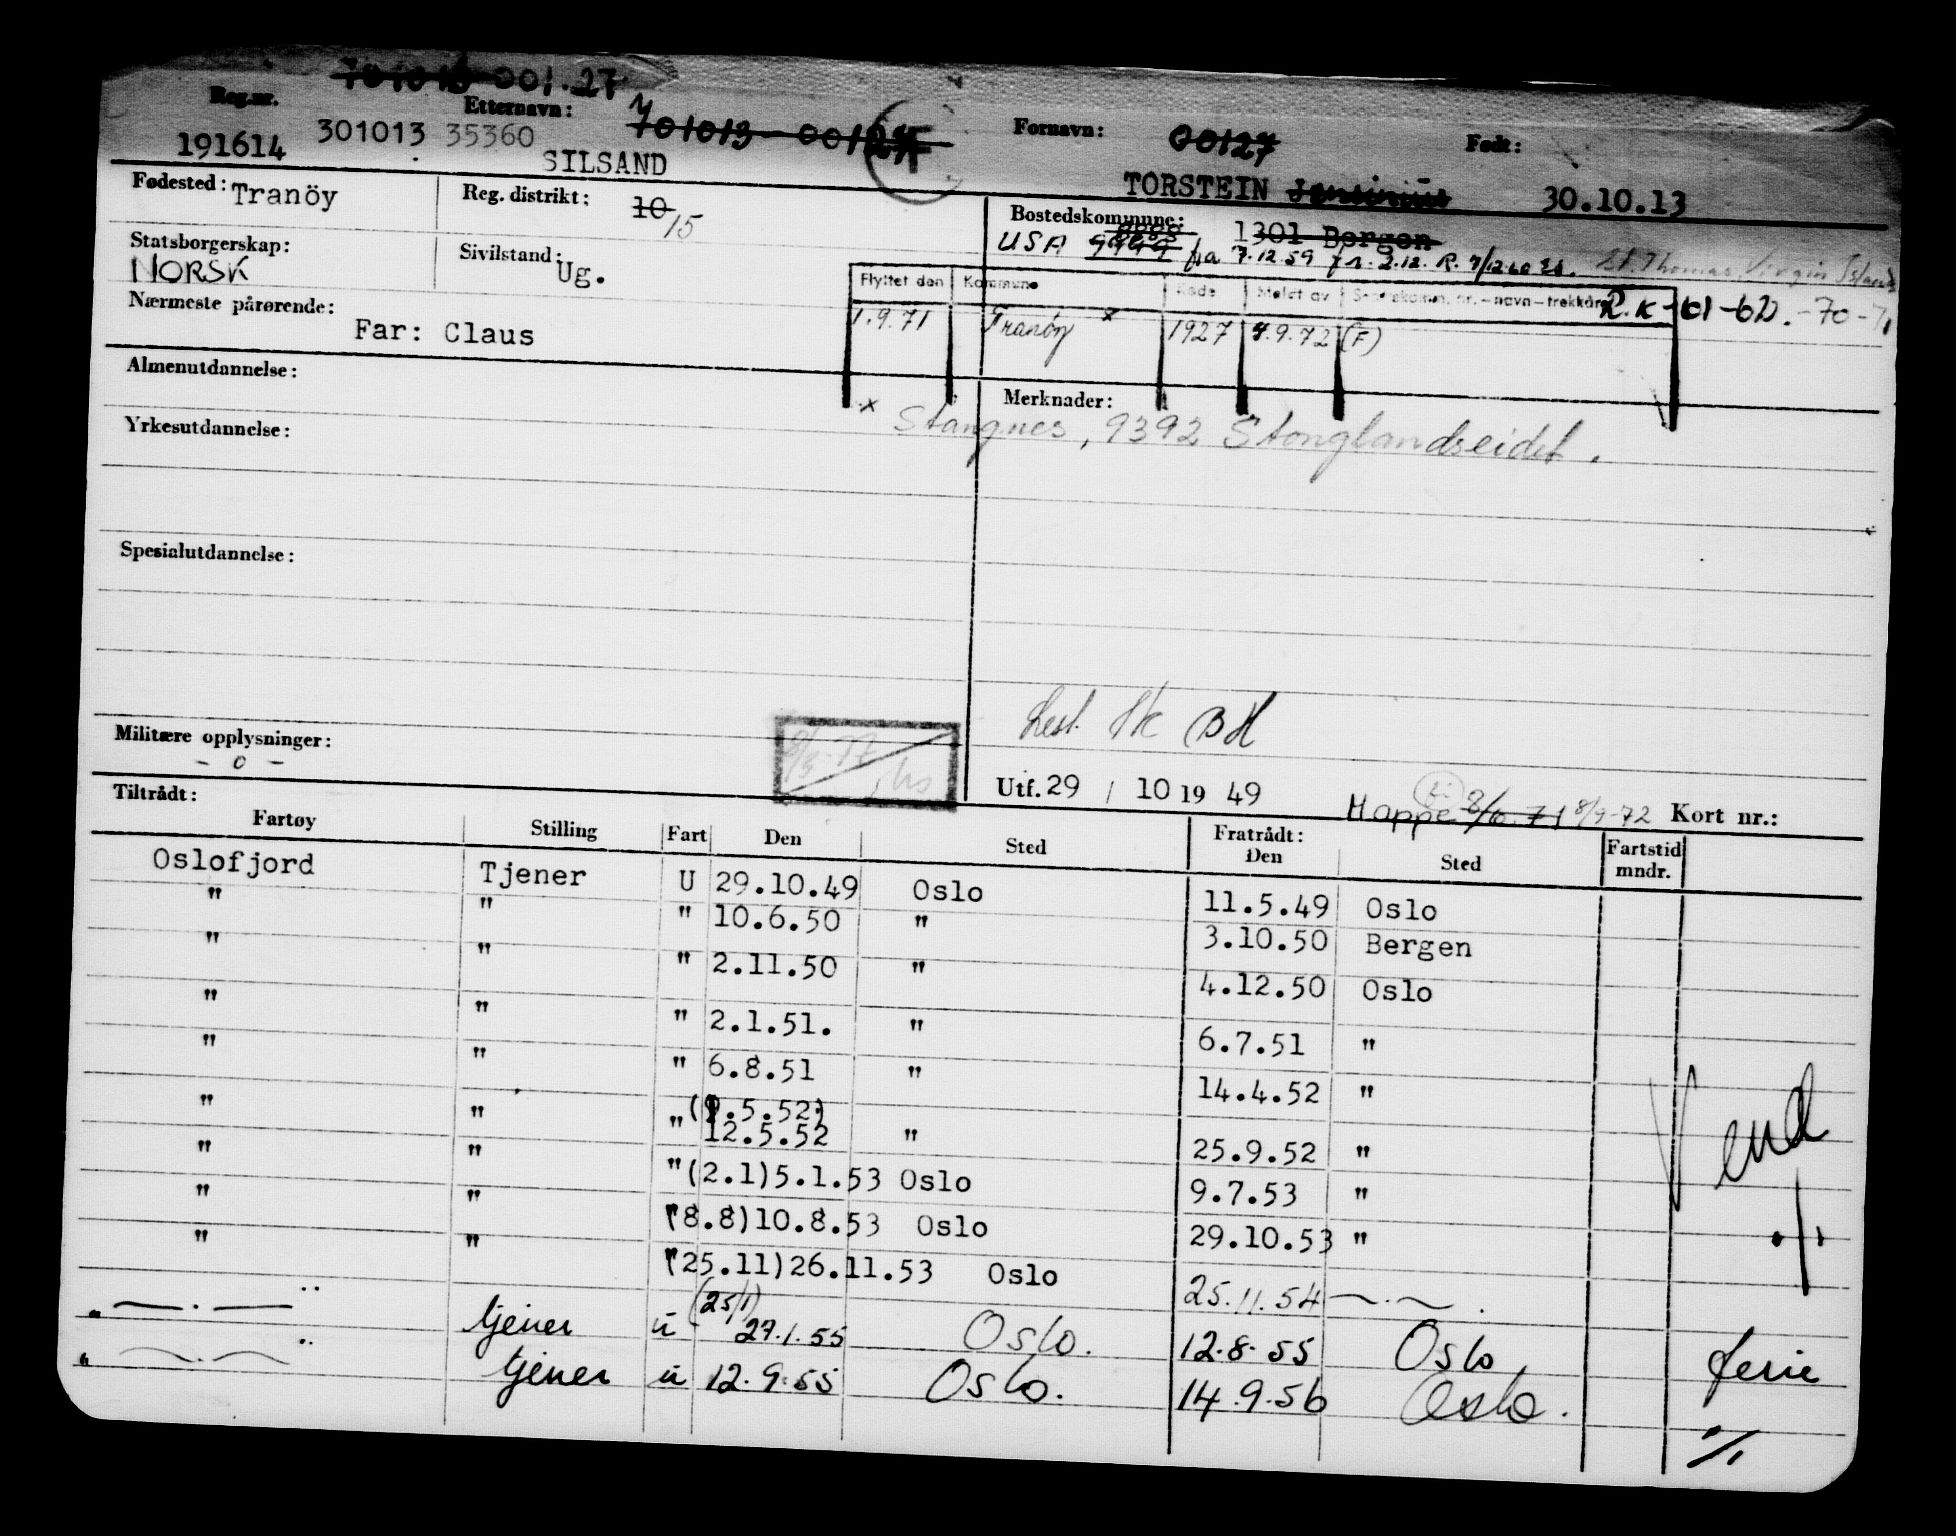 701013 001.27
Reg.nr. Etternavn: 701013-00127 Fornavn: 00127 Født:
191614 301013 35360 SILSAND TORSTEIN Jensinius 30.10.13
Fødested: Tranöy Reg. distrikt: 10/15 Bostedskommune: 1301 Bergen
USA 9999 fra 7.12.59 St. Thomas, Virgin Islands
Statsborgerskap: NORSK Sivilstand: Ug.
Flyttet den Kommune Kode Meldt av – navn – trekkår R.K -61-62. -70-71
1.9.71 Tranöy × 1927 9.72 (F)
Nærmeste pårørende: Far: Claus
Almenutdannelse: Merknader:
× Stangnes, 9392 Stonglandseidet.
Yrkesutdannelse:
Spesialutdannelse:
BH
Militære opplysninger: - 0 -
Utf. 29 / 10 19 49 Mappe 8/9-72 Kort nr.:
Tiltrådt: Fratrådt:
Fartøy Stilling Fart Den Sted Den Sted Fartstid mndr.
Oslofjord Tjener U 29.10.49 Oslo 11.5.49 Oslo
" " " 10.6.50 " 3.10.50 Bergen
" " " 2.11.50 " 4.12.50 Oslo
" " " 2.1.51. " 6.7.51 "
" " " 6.8.51 " 14.4.52 "
" " " (9.5.52) 12.5.52 " 25.9.52 "
" " " (2.1)5.1.53 Oslo 9.7.53 "
" " " (8.8)10.8.53 Oslo 29.10.53 "
" " " (25.11)26.11.53 Oslo 25.11.54 —.—.
—.— tjener u (25/1) 27.1.55 Oslo. 12.8.55 Oslo, ferie
—.— tjener u 12.9.55 Oslo. 14.9.56 Oslo.
Vend
./.